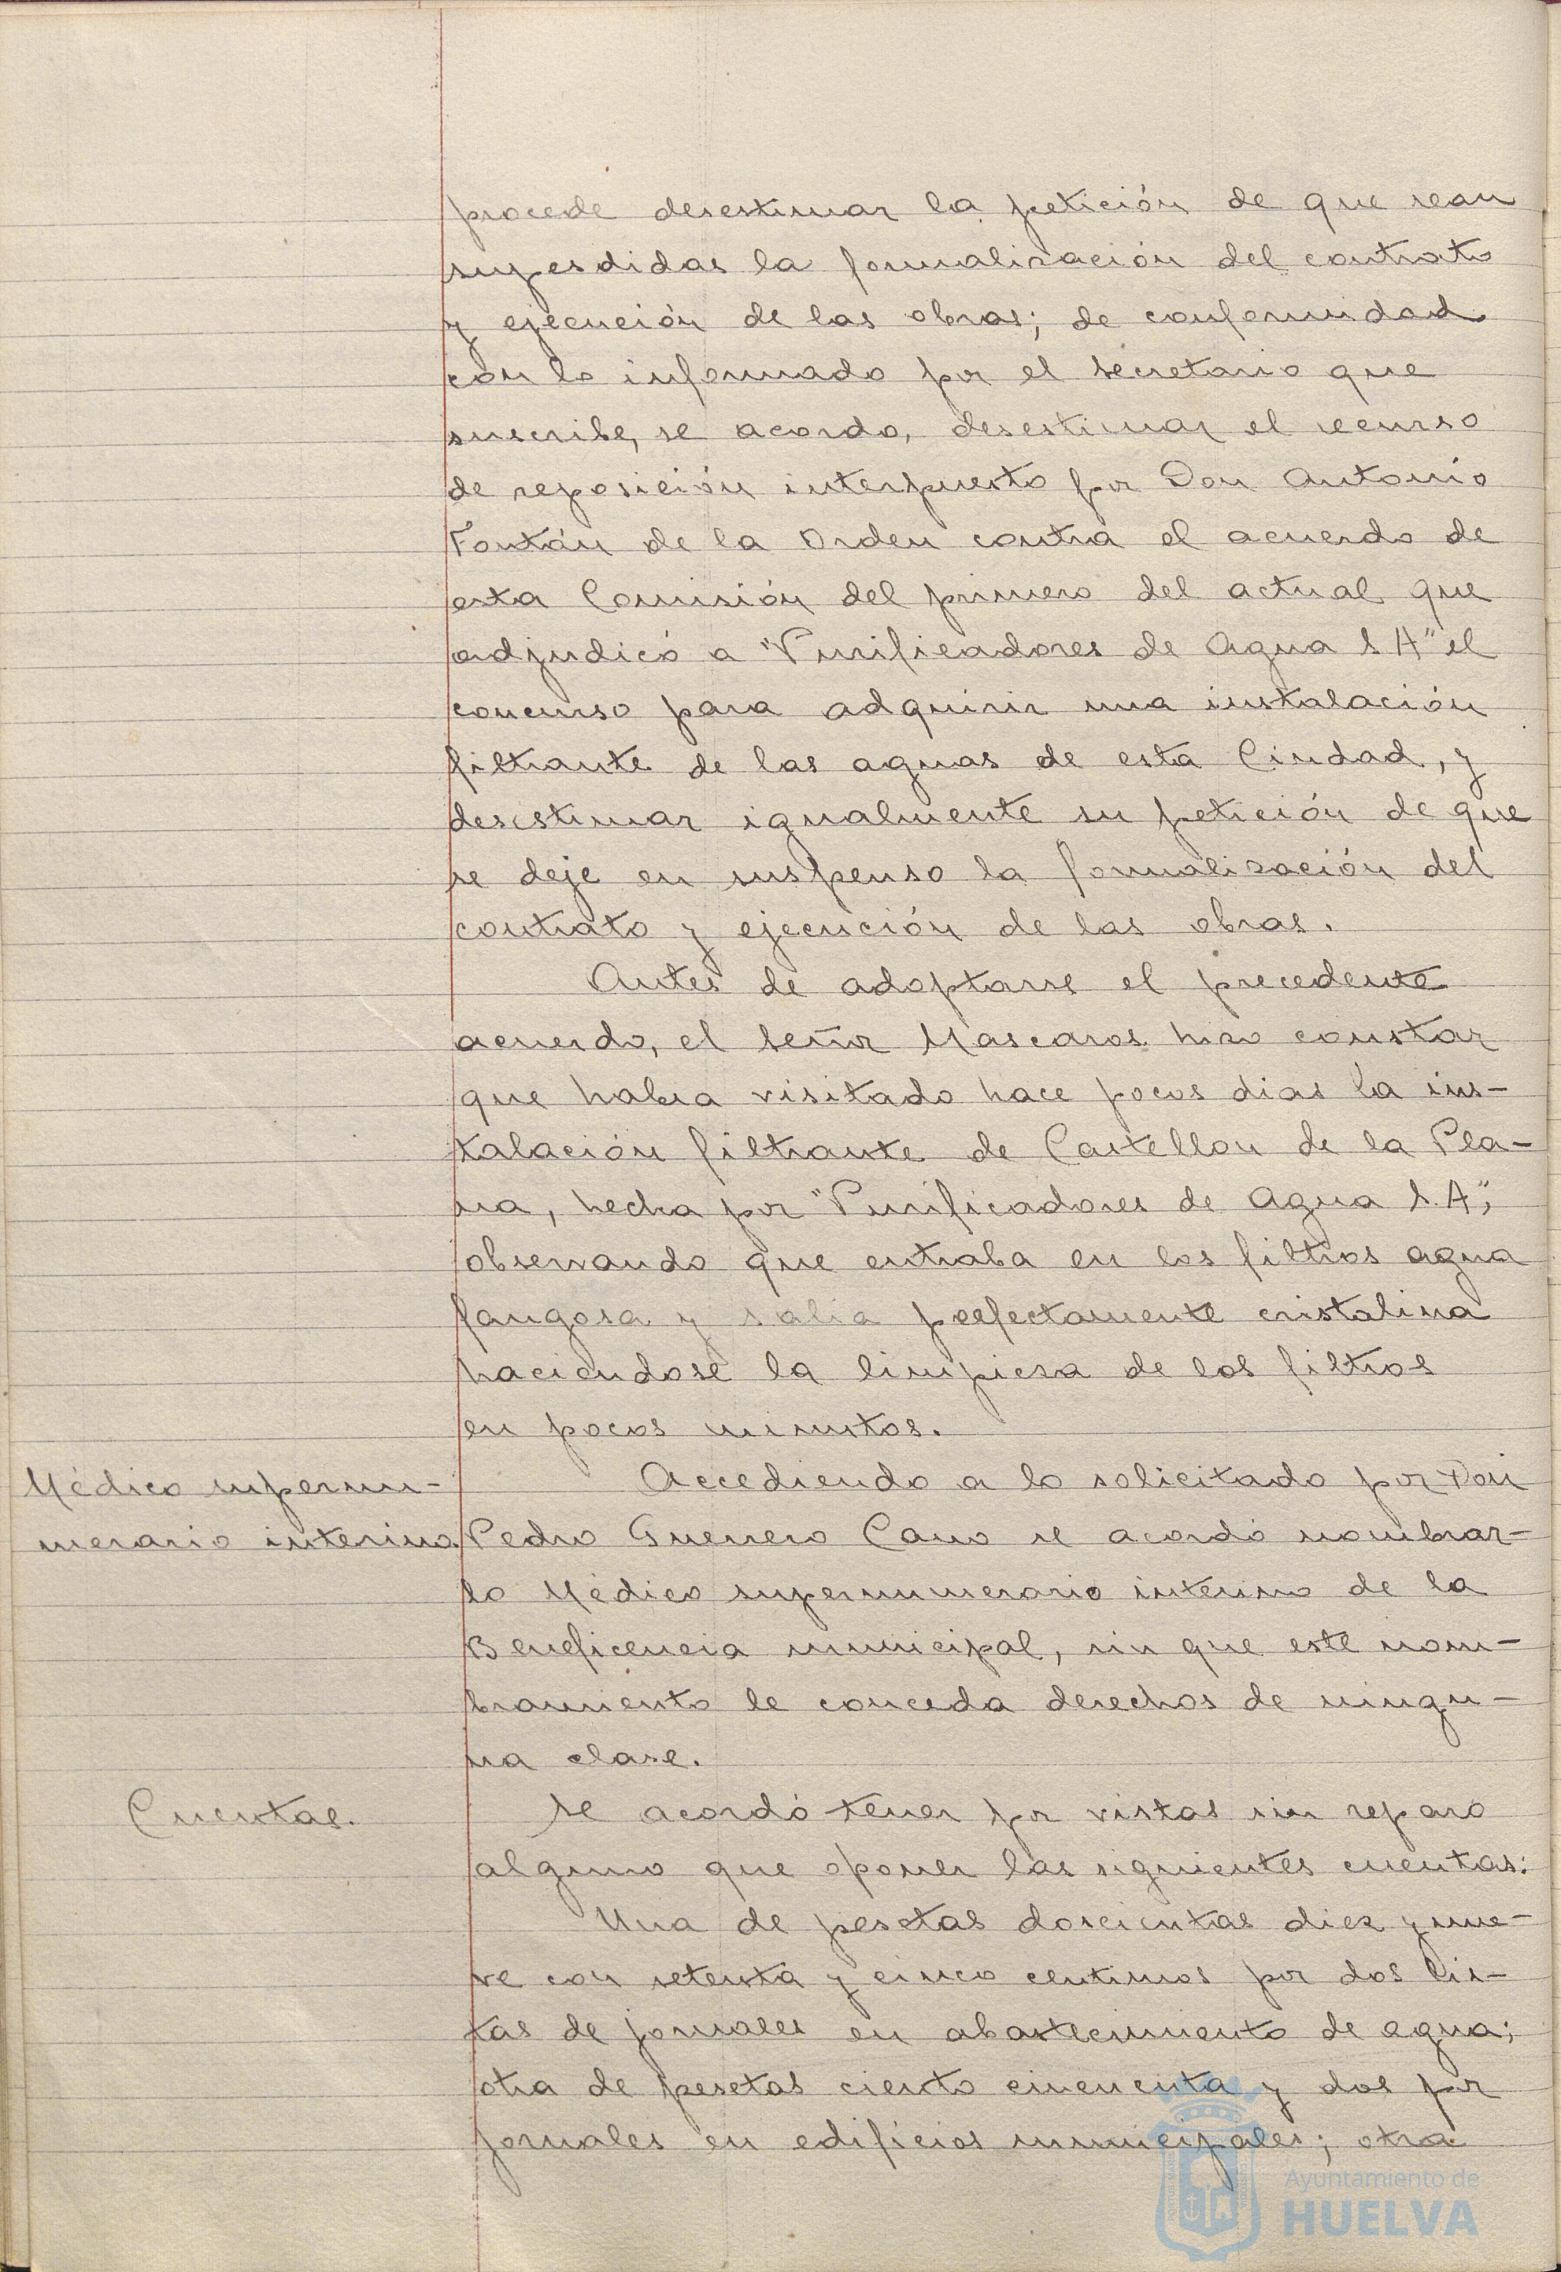 procede desestimar la petición de que sean
supesdidas la formalización del contrato
y ejecución de las obras; de conformidad
con lo informado por el Secretario que
suscribe, se acordo, desestimar el recurso
de reposición interpuesto por Don Antonio
Fontán de la Orden contra el acuerdo de
esta Comisión del primero del actual que
adjudicó a "Purificadores de Agua S A" el
concurso para adquirir una instalación
filtrante de las aguas de esta Ciudad, y
desestimar igualmente su petición de que
se deje en suspenso la formalización del
contrato y ejecución de las obras.
Antes de adoptarse el precedente
acuerdo, el Señor Mascaros hizo constar
que habia visitado hace pocos dias la ins-
talación filtrante de Castellon de la Pla-
na, hecha por "Purificadores de Agua S. A",
observando que entraba en los filtros agua
fangosa y salia perfectamente cristalina
haciendose la limpieza de los filtros
en pocos minutos.
Médico supernu-
merario interino.
Accediendo a lo solicitado por Don
Pedro Guerrero Cano se acordó nombrar-
lo Médico supernumerario interino de la
Beneficencia municipal, sin que este nom-
bramiento le conceda derechos de ningu-
na clase.
Cuentas.
Se acordó tener por vistas sin reparo
alguno que oponer las siguientes cuentas:
Una de pesetas doscientas diez y nue-
ve con setenta y cinco centimos por dos lis-
tas de jornales en abastecimiento de agua;
otra de pesetas ciento cincuenta y dos por
jornales en edificios municipales; otra
Ayuntamiento de
HUELVA